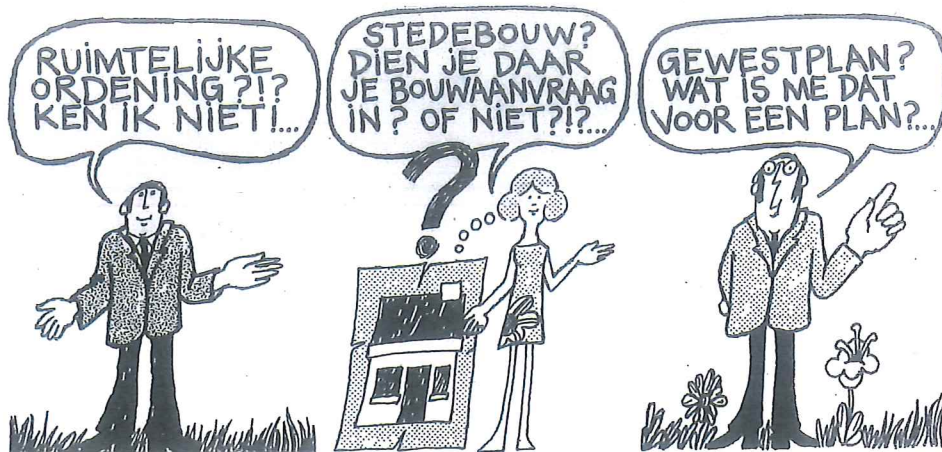 RUIMTELIJKE
ORDENING?!?
KEN IK NIET!...
STEDEBOUW?
DIEN JE DAAR
JE BOUWAANVRAAG
IN? OF NIET?!?...
?
GEWESTPLAN?
WAT IS ME DAT
VOOR EEN PLAN?...